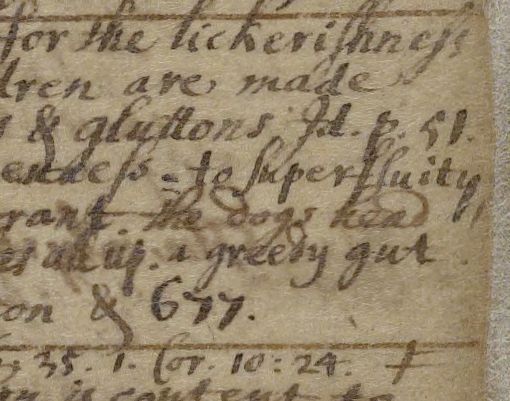 for the lickerishness
dren are made
s & gluttons. Id. p. 51.
excess - to superfluity
grant the dogs head
es all up. a greedy gut
on & 677.
35. 1. Cor. 10: 24. +
is content to